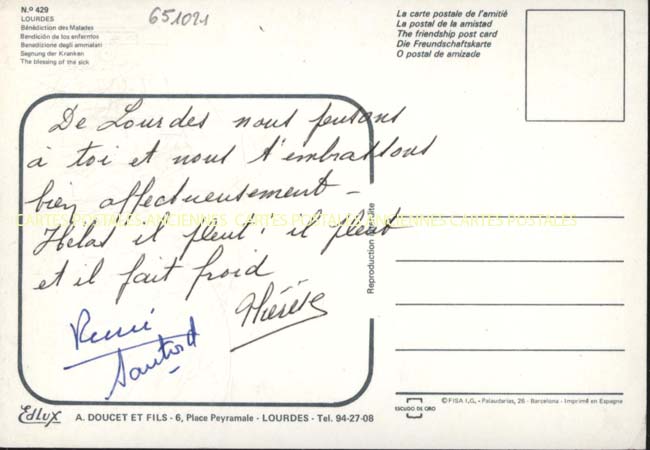 N.º 429
LOURDES
Bénédiction des Malades
Bendición de los enfermos
Benedizione degli ammalati
Segnung der Kranken
The blessing of the sick
651021
La carte postale de l'amitié
La postal de la amistad
The friendship post card
Die Freundschaftskarte
O postal de amizade
De Lourdes nous pensons
à toi et nous t'embrassons
bien affectueusement -
Hélas il pleut, il pleut
et il fait froid
René
Thérèse
CARTES POSTALES ANCIENNES CARTES POSTALES ANCIENNES CARTES POSTALES
Reproduction
EdLux
A. DOUCET ET FILS - 6, Place Peyramale - LOURDES - Tel. 94-27-08
ESCUDO DE ORO
© FISA I.G. - Palaudarias, 26 - Barcelona - Imprimé en Espagne